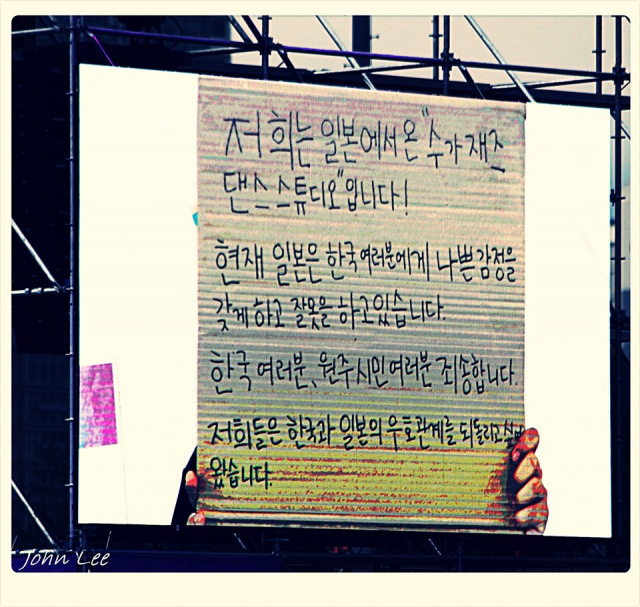 저희는 일본에서 온 "수가 재즈
댄스 스튜디오"입니다!
현재 일본은 한국 여러분에게 나쁜 감정을
갖게 하고 잘못을 하고 있습니다.
한국 여러분, 원주 시민 여러분 죄송합니다.
저희들은 한국과 일본의 우호관계를 되돌리고 싶어
왔습니다.
John Lee